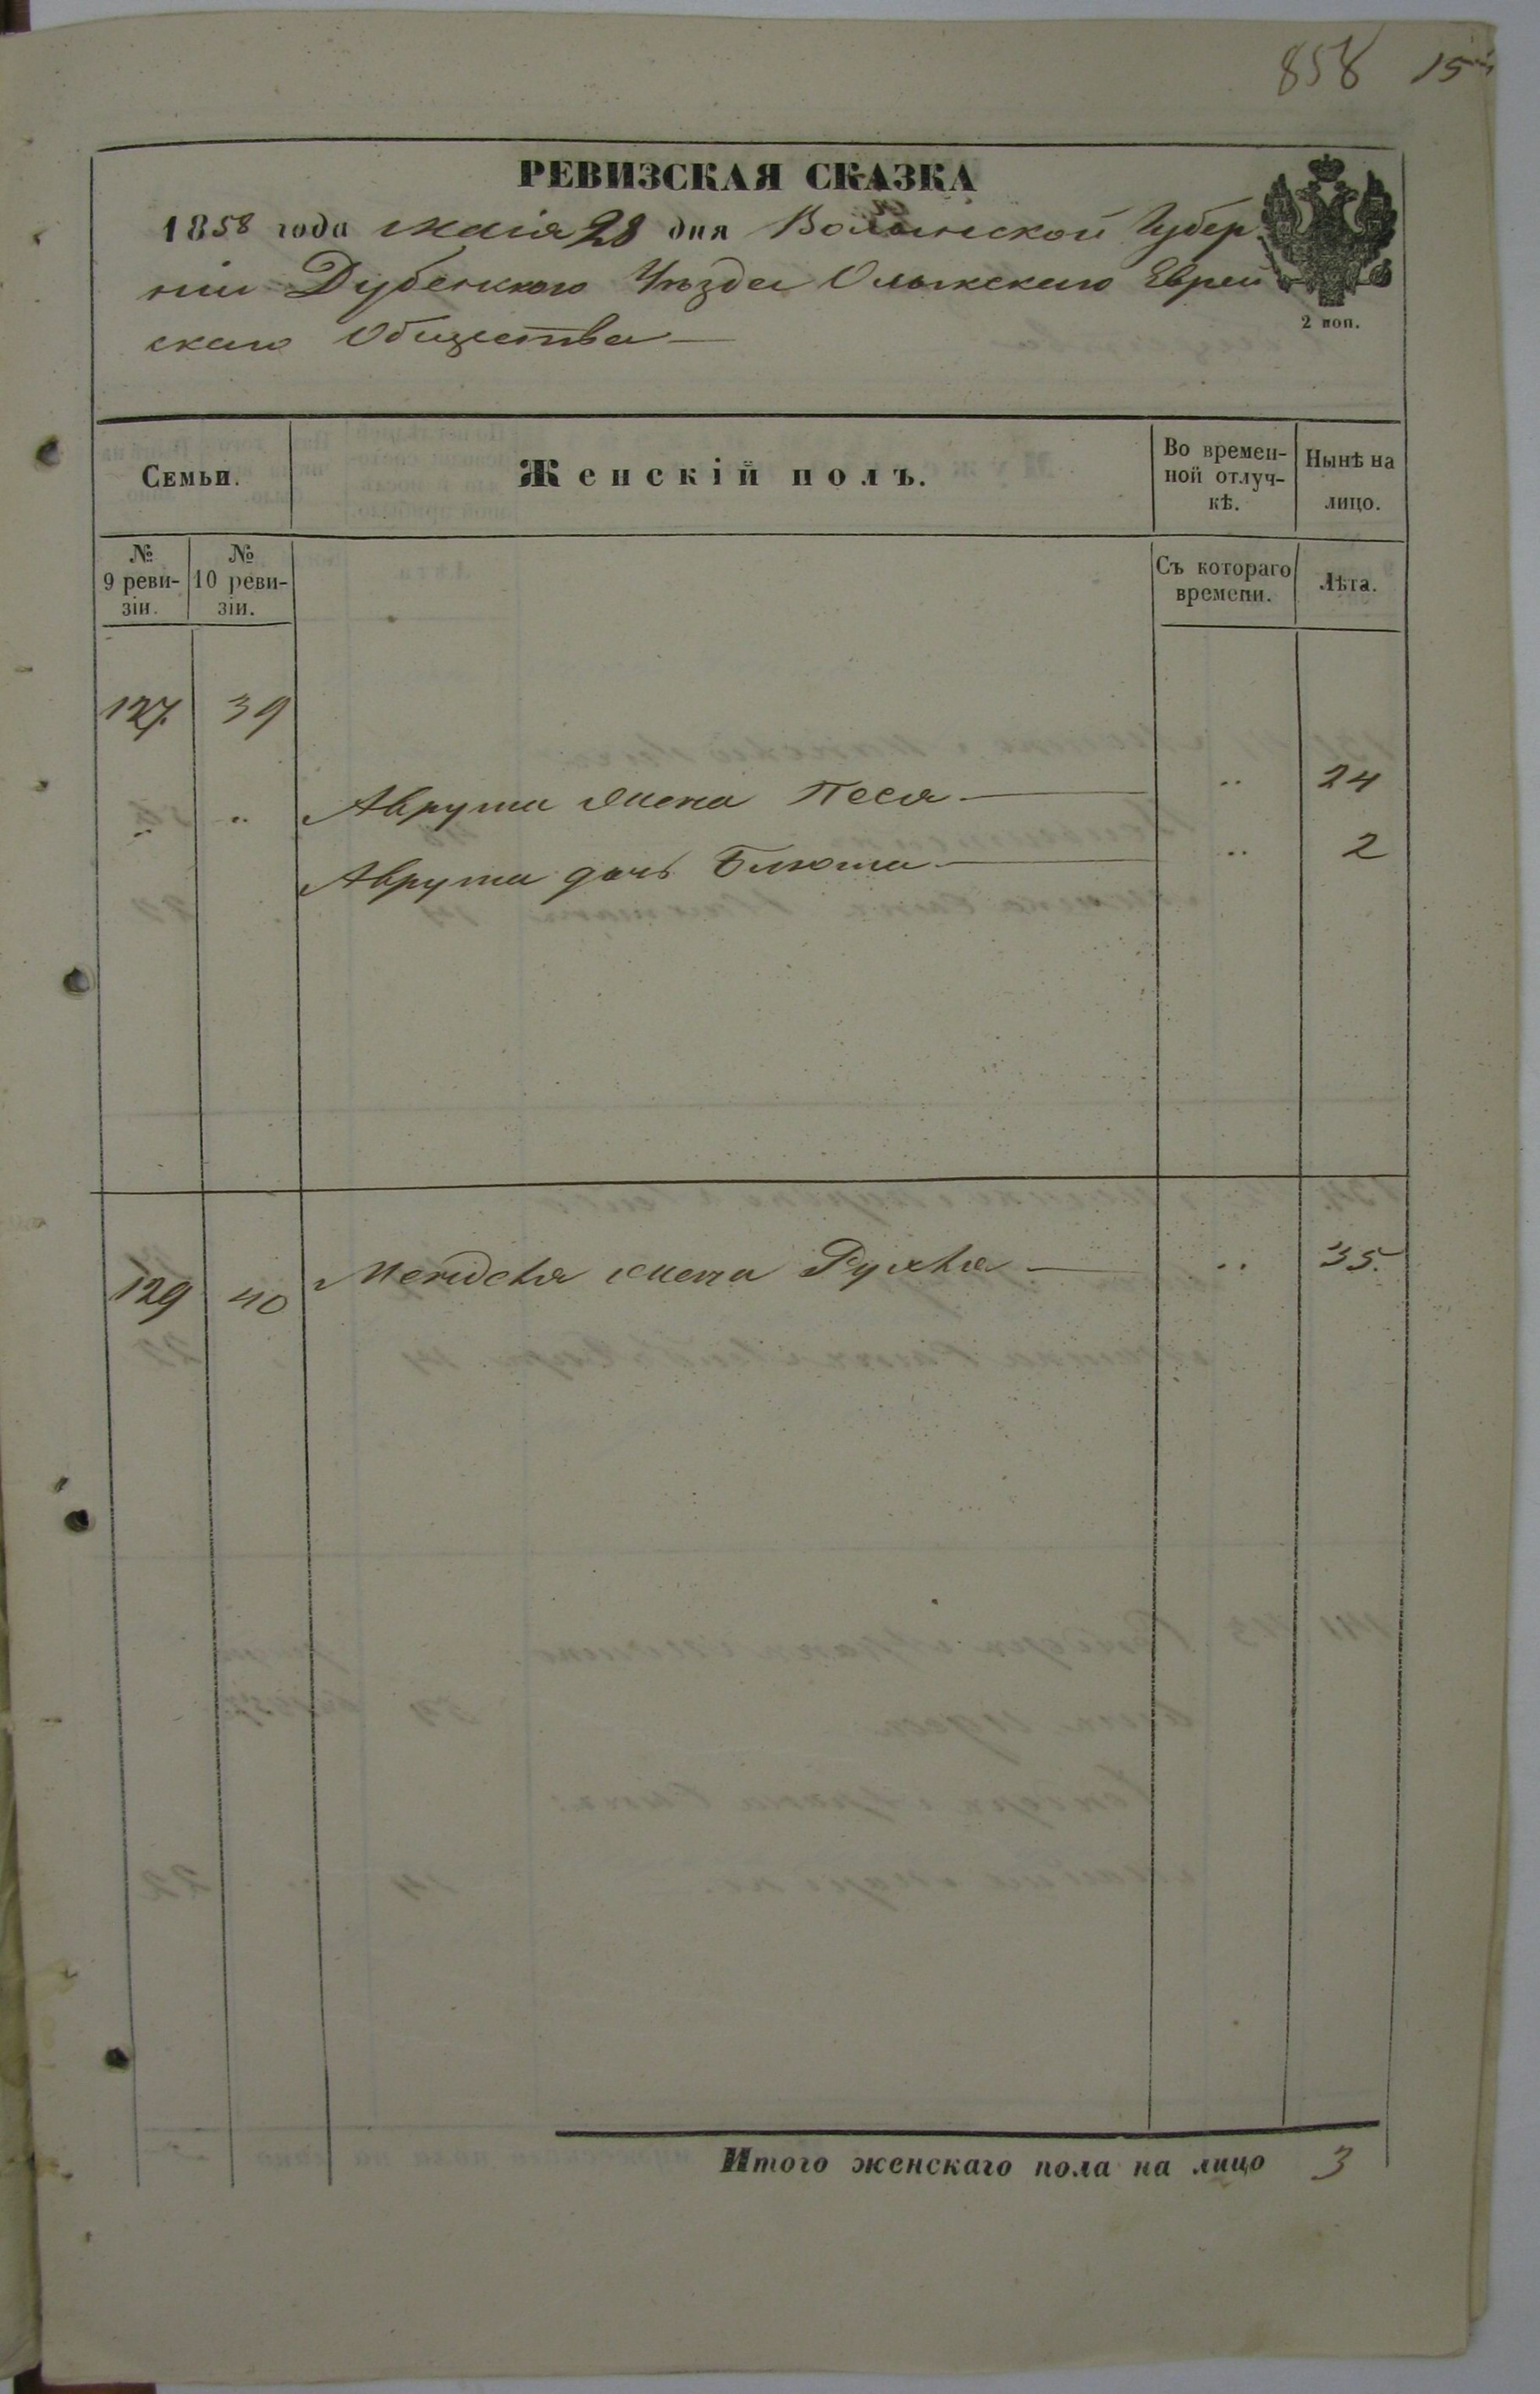 858 15
РЕВИЗСКАЯ СКАЗКА
1858 года Маія 28 дня Волынской Губер
ніи Дубенскаго Уѣзда Олыкскаго Еврей
скаго Общества
2 коп.
Семьи.
Женскій полъ.
Во времен-
ной отлуч-
кѣ.
Нынѣ на
лицо.
№
9 реви-
зіи.
№
10 реви-
зіи.
Съ котораго
времени.
Лѣта.
127. 39
" " Аврума жена Песя " 24
Аврума дочь Блюма " 2
129 40 жена Рухля " 35.
Итого женскаго пола на лицо 3